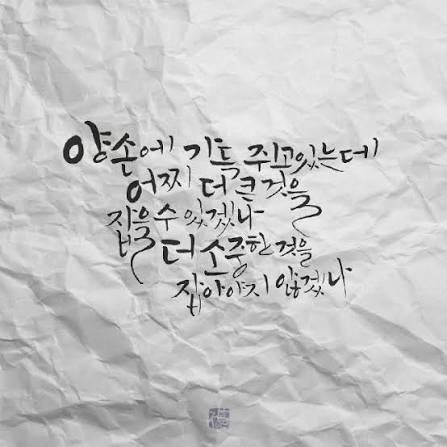 양손에 가득 쥐고있는데
어찌 더 큰것을
집을 수 있겠나
더 소중한 것을
잡아야지 않겠나